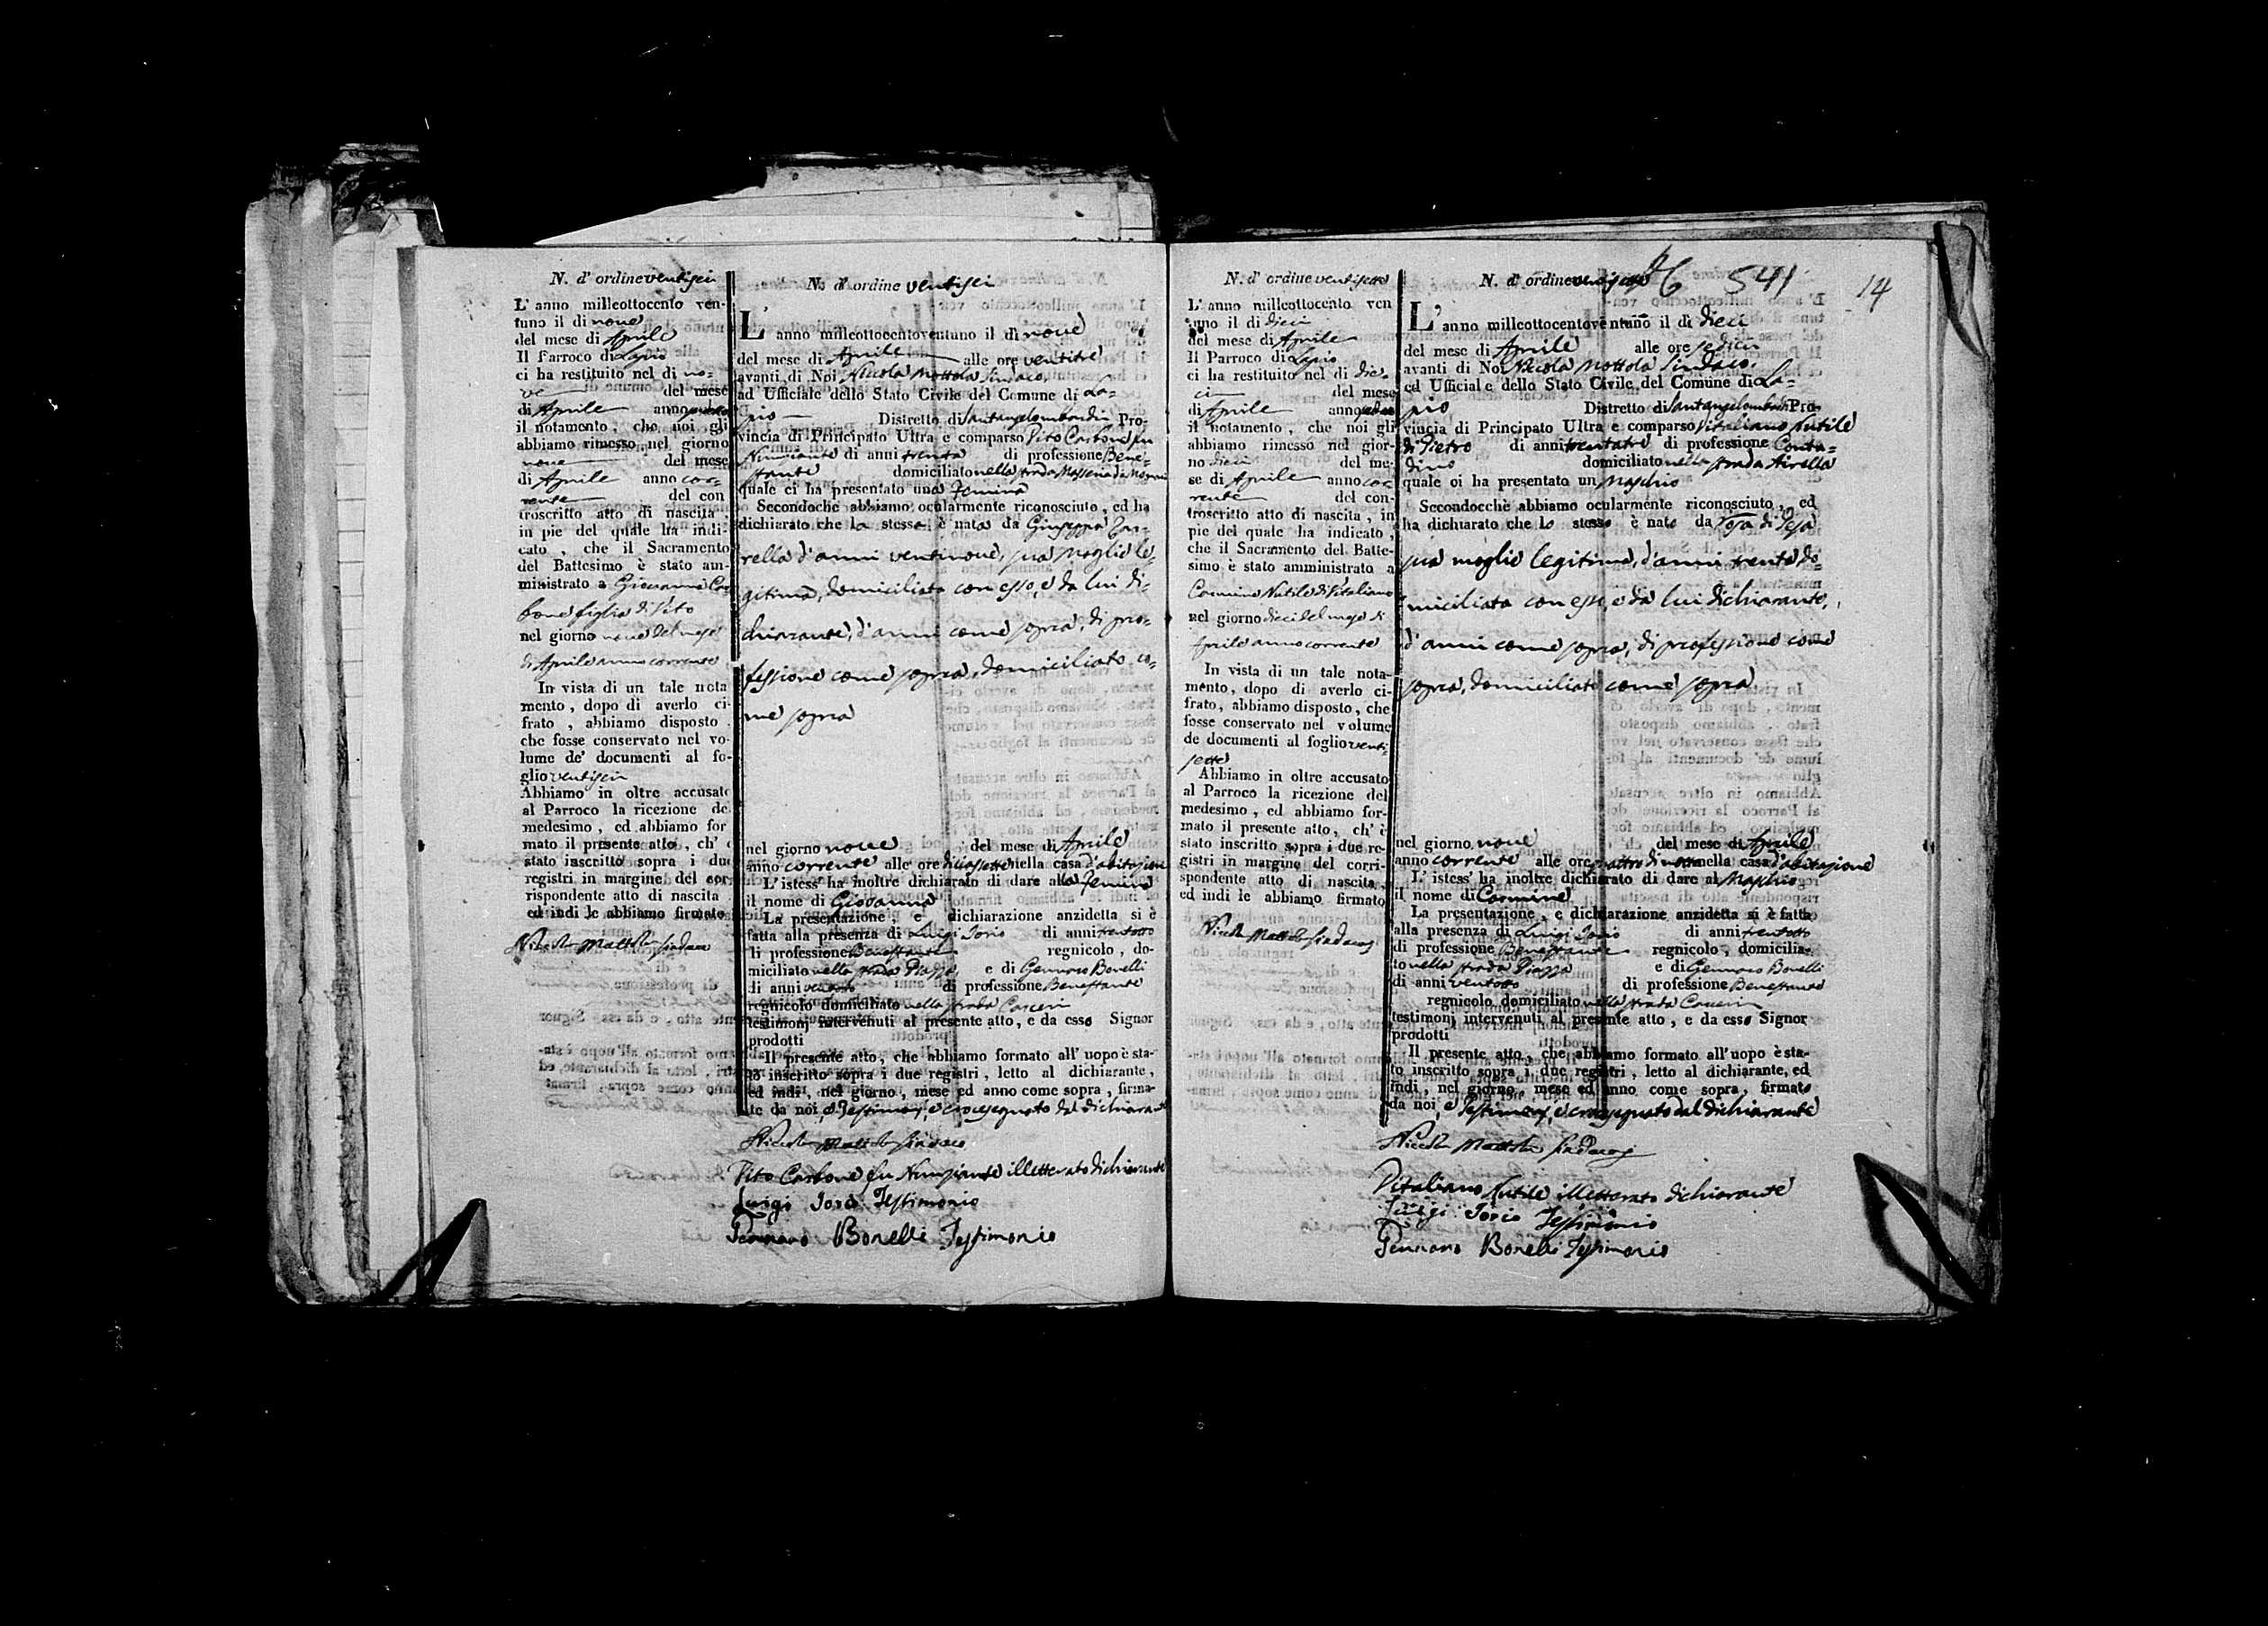 N. d' ordine ventisei
L' anno milleottocento ven-
tuno il di nove
del mese di Aprile
Il Parroco di Lapio
ci ha restituito nel di no-
ve del mese
di Aprile anno
il notamento, che noi gli
abbiamo rimesso nel giorno
nove del mese
di Aprile anno cor-
rente del con
troscritto atto di nascita,
in pie del quale ha indi-
cato, che il Sacramento
del Battesimo è stato am-
ministrato a Giovanna Car
bone figlia di Vito
nel giorno nove del mese
di Aprile anno corrente
In vista di un tale nota
mento, dopo di averlo ci-
frato, abbiamo disposto
che fosse conservato nel vo-
lume de' documenti al fo-
glio ventisei
Abbiamo in oltre accusato
al Parroco la ricezione de
medesimo, ed abbiamo for
mato il presente atto, ch' è
stato inscritto sopra i due
registri in margine del cor
rispondente atto di nascita
ed indi le abbiamo firmato
Nicola Mottola Sindaco
N. d' ordine ventisei
L' anno milleottocentoventuno il dì nove
del mese di Aprile alle ore ventitre
avanti di Noi Nicola Mottola Sindaco,
ad Ufficiale dello Stato Civile del Comune di La=
pio Distretto di Santangelombardi Pro-
vincia di Principato Ultra è comparso Vito Carbone fu
Nunziante di anni trenta di professione Bene=
stante domiciliato nella strada Masseria di
quale ci ha presentato una Femina
Secondochè abbiamo ocularmente riconosciuto, ed ha
dichiarato che la stessa è nata da Giuseppa
rella d'anni ventinove, sua moglie le-
gitima, domiciliata con esso, e da lui di-
chiarante, d'anni come sopra, di pro=
fessione come sopra, domiciliato co=
me sopra
nel giorno nove del mese di Aprile
anno corrente alle ore diciassette nella casa d'abitazione
L' istess' ha inoltre dichiarato di dare alla Femina
il nome di Giovanna
La presentazione, e dichiarazione anzidetta si è
fatta alla presenza di Luigi Iorio di anni trentotto
di professione Benestante regnicolo, do-
miciliato nella strada Piazza e di Gennaro Bonelli
di anni ventotto di professione Benestante
regnicolo domiciliato nella strada
testimonj intervenuti al presente atto, e da esso Signor
prodotti
Il presente atto, che abbiamo formato all' uopo è sta-
to inscritto sopra i due registri, letto al dichiarante,
ed indi, nel giorno, mese ed anno come sopra, firma-
to da noi, e Testimonj, e crocesegnato dal dichiarante
Nicola Mottola Sindaco
Vito Carbone fu Nunziante illetterato dichiarante
Luigi Iorio Testimonio
Gennaro Bonelli Testimonio
N. d' ordine ventisette
L' anno milleottocento ven
tuno il di dieci
del mese di Aprile
Il Parroco di Lapio
ci ha restituito nel di die-
ci del mese
di Aprile anno
il notamento, che noi gli
abbiamo rimesso nel gior-
no dieci del me-
se di Aprile anno cor-
rente del con-
troscritto atto di nascita, in
pie del quale ha indicato,
che il Sacramento del Batte-
simo è stato amministrato a
Carmine Nutile di Vitaliano
nel giorno dieci del mese di
Aprile anno corrente
In vista di un tale nota-
mento, dopo di averlo ci-
frato, abbiamo disposto, che
fosse conservato nel volume
de documenti al foglio venti-
sette
Abbiamo in oltre accusato
al Parroco la ricezione del
medesimo, ed abbiamo for-
mato il presente atto, ch' è
stato inscritto sopra i due re-
gistri in margine del corri-
spondente atto di nascita,
ed indi le abbiamo firmato
Nicola Mottola Sindaco
N. d' ordine ventisette 26 541 14
L' anno milleottocentoventuno il di dieci
del mese di Aprile alle ore sedici
avanti di Noi Nicola Mottola Sindaco,
ed Ufficiale dello Stato Civile del Comune di La=
pio Distretto di Santangelombardi Pro-
vincia di Principato Ultra è comparso Vitaliano Nutile
di Pietro di anni trentatre di professione Conta=
dino domiciliato nella strada Airella
quale ci ha presentato un Maschio
Secondocchè abbiamo ocularmente riconosciuto, ed
ha dichiarato che lo stesso è nato da Rosa di Pesa
sua moglie legitima, d'anni trenta do-
miciliata con esso, e da lui dichiarante,
d'anni come sopra, di professione come
sopra, domiciliato come sopra
nel giorno nove del mese di Aprile
anno corrente alle ore quattro di notte nella casa d'abitazione
L' istess' ha inoltre dichiarato di dare al Maschio
il nome di Carmine
La presentazione, e dichiarazione anzidetta si è fatta
alla presenza di Luigi Iorio di anni trentotto
di professione Benestante regnicolo, domicilia-
to nella strada Piazza e di Gennaro Bonelli
di anni ventotto di professione Benestante
regnicolo domiciliato nella strada
testimonj intervenuti al presente atto, e da esso Signor
prodotti
Il presente atto, che abbiamo formato all' uopo è sta-
to inscritto sopra i due registri, letto al dichiarante, ed
indi, nel giorno, mese ed anno come sopra, firmato
da noi, e Testimonj, e crocesegnato dal dichiarante
Nicola Mottola Sindaco
Vitaliano Nutile illetterato dichiarante
Luigi Iorio Testimonio
Gennaro Bonelli Testimonio